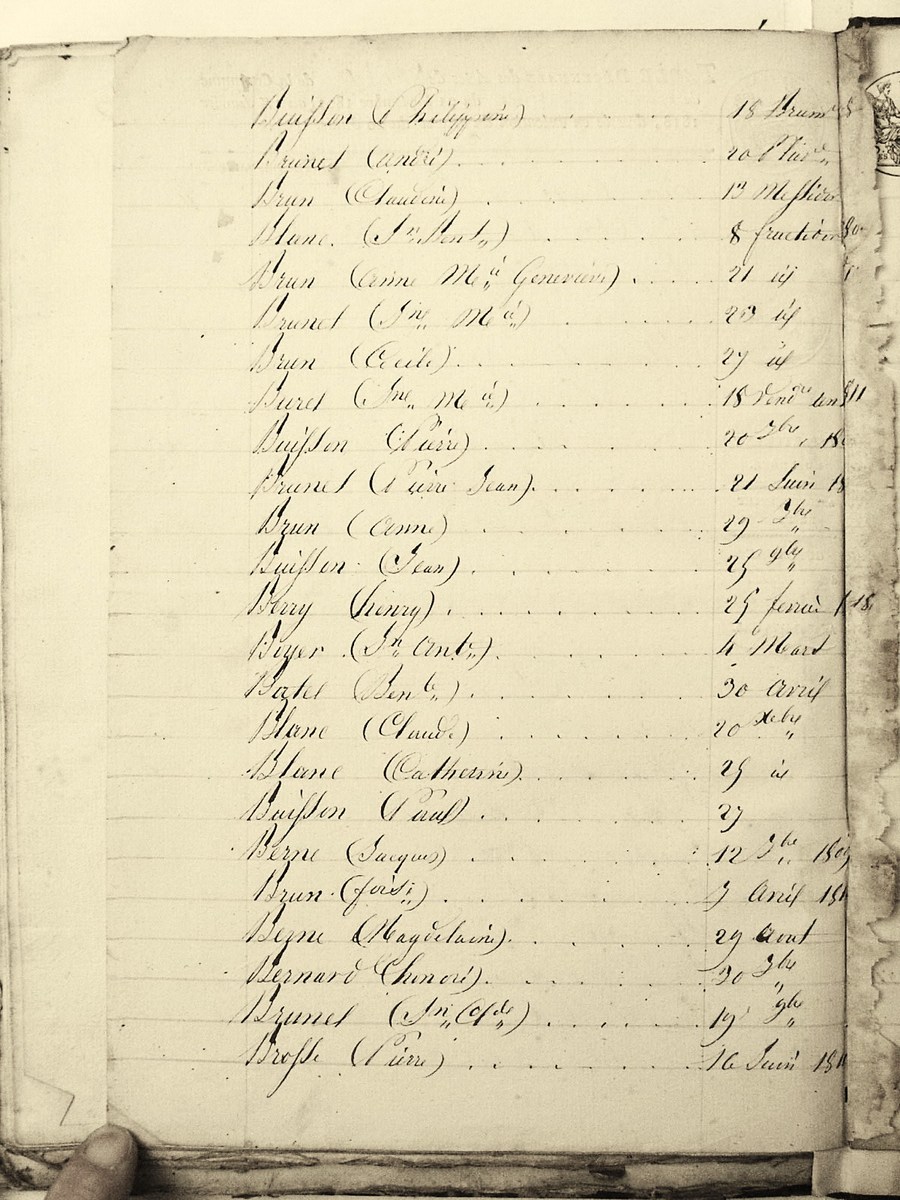 Buisson (Philippine) 18 Brum
Brunet (andré) 20 Pluv
Brun (Claudine) 13 Messidor
Blanc (Jn Bent) 8 fructidor
Brun (anne Mie Geneviève) 21 id
Brunet (Jne Mie) 23 id
Brun (Cécile) 27 id
Buret (Jne Mie) 18 Vendre an 11
Buisson (Pierre) 20 7bre 18
Brunet (Pierre Jean) 21 Juin 18
Brun (anne) 29 7bre
Buisson (Jean) 25 9bre
Berry (henry) 25 ferier 18
Boyer (Jn Ante) 4 Mars
Batel (Bente) 30 avril
Blanc (Claude) 20 Xbre
Blanc (Catherine) 25 id
Buisson (Paul) 27
Berne (Jacques) 12 7bre 1809
Brun (fçois) 7 Avril 181
Berne (Magdelaine) 29 Aout
Bernard (honoré) 30 7bre
Brunet (Jn Cde) 19 9bre
Brosse (Pierre) 16 Juin 181